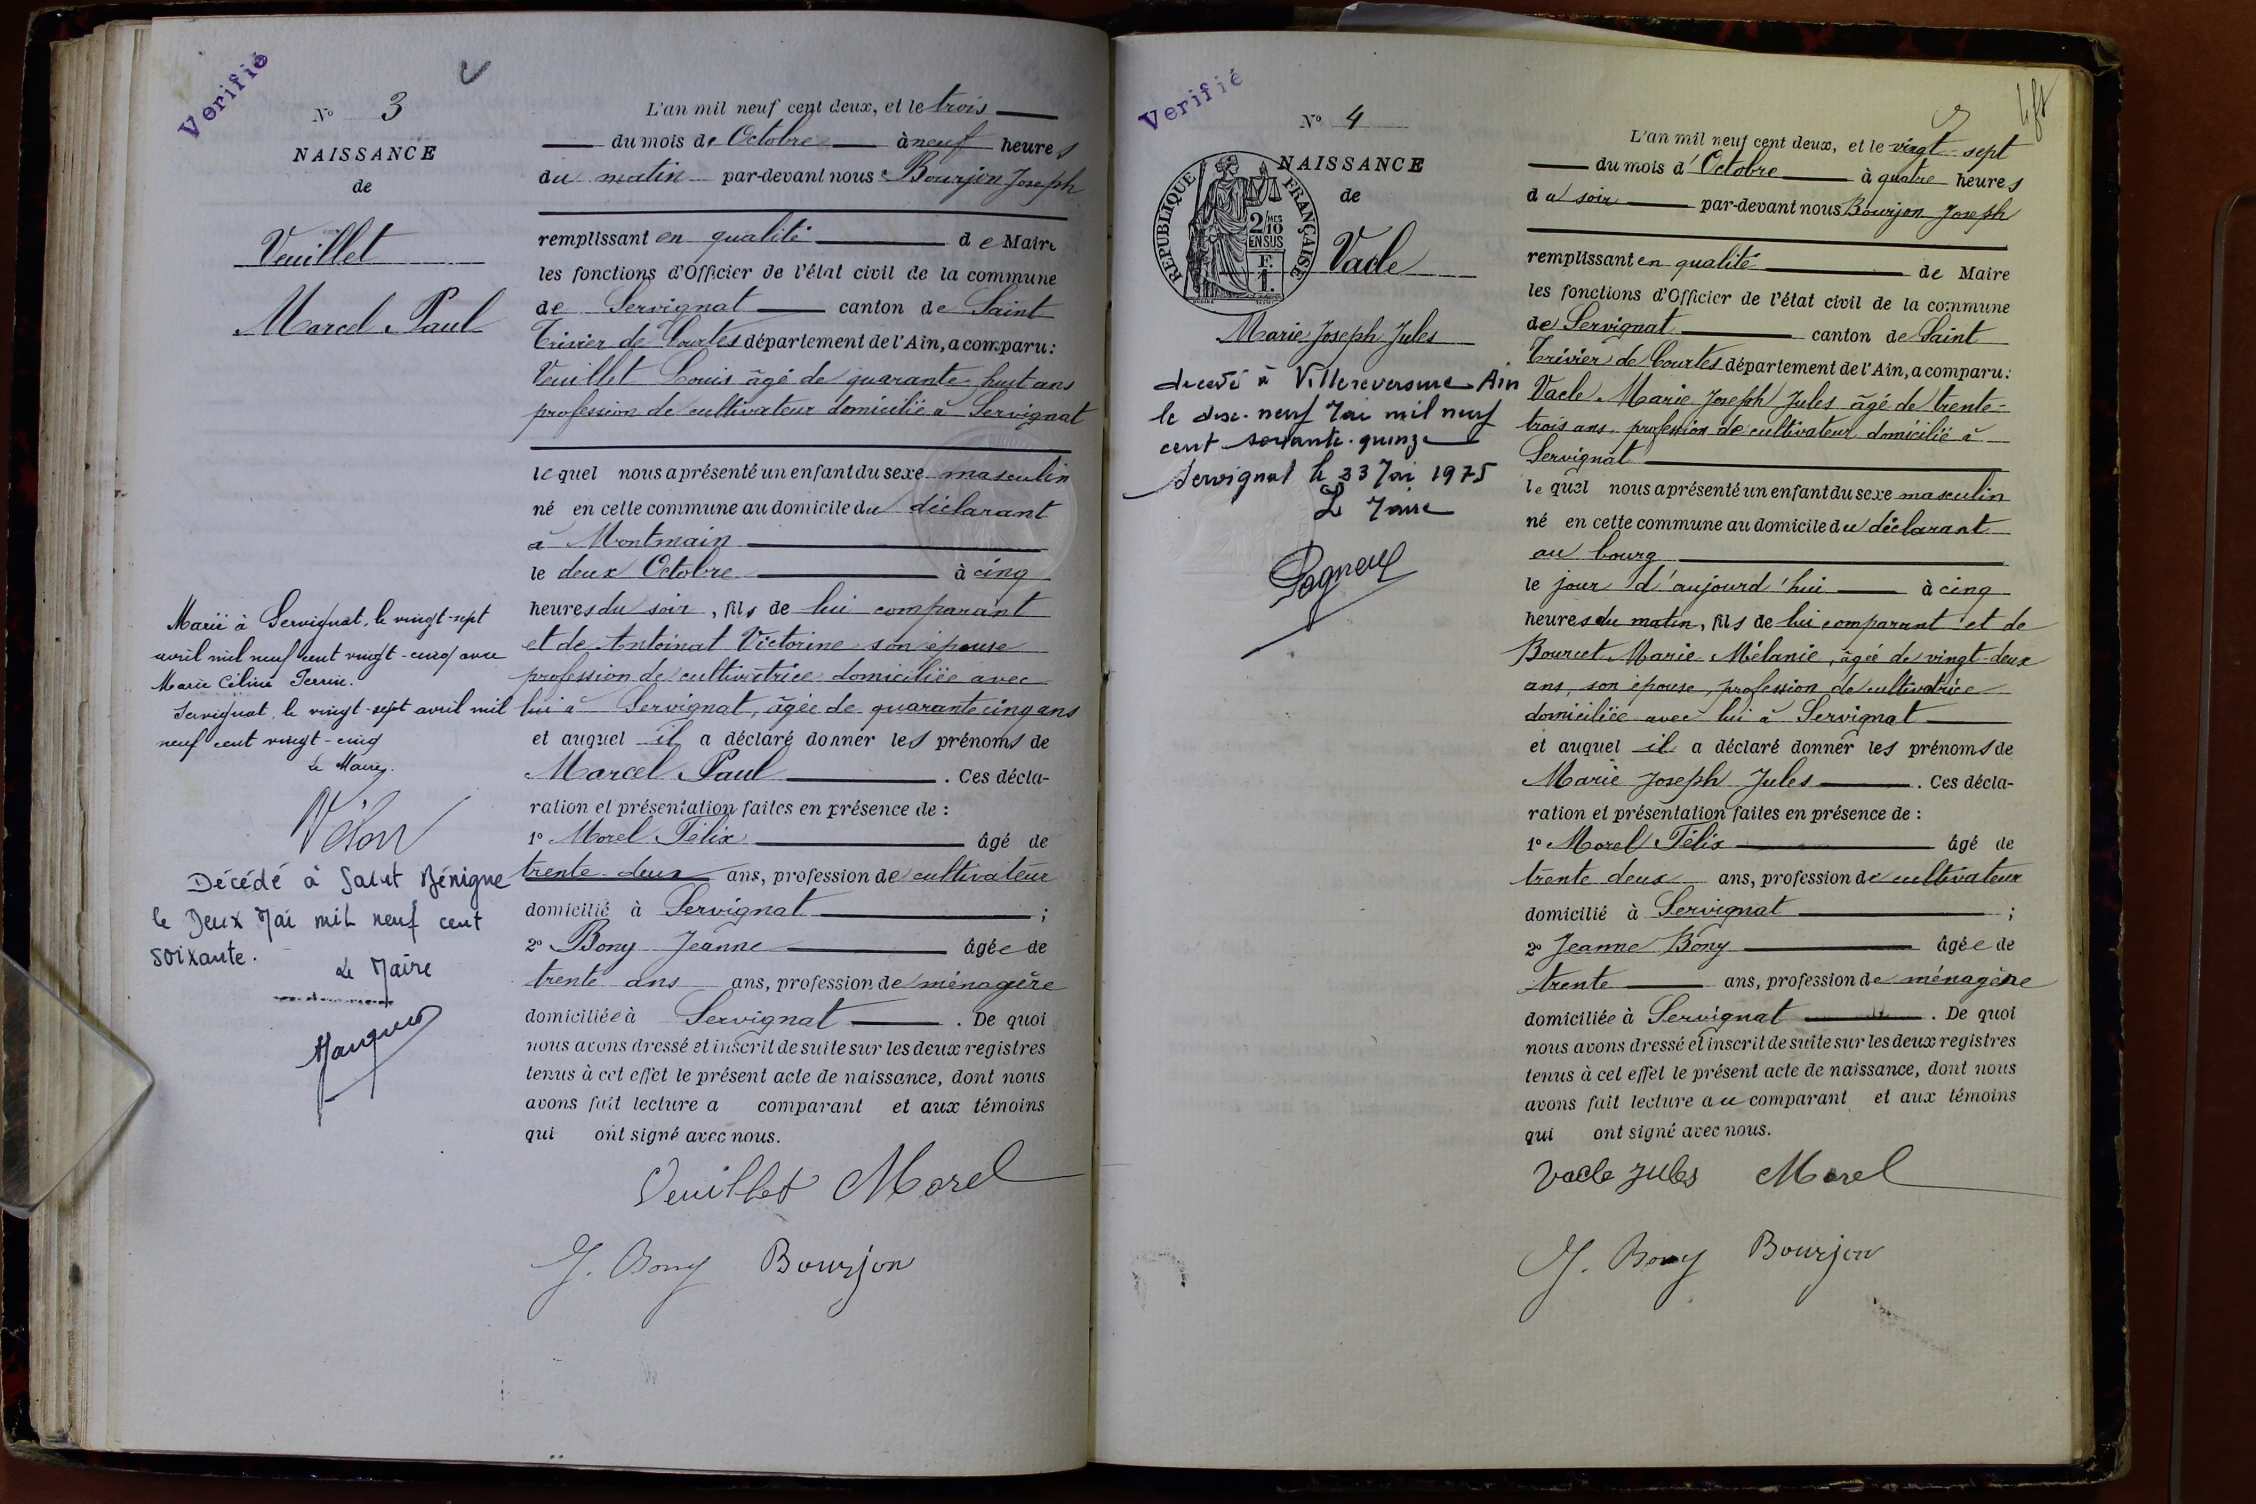 Verifié
N° 3
NAISSANCE
de
Veuillet
Marcel Paul
Marié à Servignat, le vingt-sept
avril mil neuf cent vingt-cinq avec
Marie Céline Perrin.
Servignat, le vingt-sept avril mil
neuf cent vingt-cinq
Le Maire,
Décédé à Saint Bénigne
le Deux Mai mil neuf cent
soixante.
Le Maire
L'an mil neuf cent deux, et le trois
du mois de Octobre à neuf heures
du matin par-devant nous Bourjon Joseph
remplissant en qualité de Maire
les fonctions d'Officier de l'état civil de la commune
de Servignat canton de Saint
Trivier de Courtes département de l'Ain, a comparu:
Veuillet Louis âgé de quarante-huit ans
profession de cultivateur domicilié à Servignat
lequel nous a présenté un enfant du sexe masculin
né en cette commune au domicile du déclarant
à Montmain
le deux Octobre à cinq
heures du soir, fils de lui comparant
et de Antoinat Victorine son épouse
profession de cultivatrice domiciliée avec
lui à Servignat, âgée de quarante cinq ans
et auquel il a déclaré donner les prénoms de
Marcel Paul. Ces décla-
ration et présentation faites en présence de :
1° Morel Félix âgé de
trente-deux ans, profession de cultivateur
domicilié à Servignat ;
2° Bony Jeanne âgée de
trente ans ans, profession de ménagère
domiciliée à Servignat. De quoi
nous avons dressé et inscrit de suite sur les deux registres
tenus à cet effet le présent acte de naissance, dont nous
avons fait lecture a comparant et aux témoins
qui ont signé avec nous.
Veuillet Morel
J. Bony Bourjon
Verifié
N° 4
NAISSANCE
de
REPUBLIQUE FRANÇAISE
2/10 MES
EN SUS
F.
1.
Vacle
Marie Joseph Jules
décédé à Villereversure Ain
le dix-neuf Mai mil neuf
cent soixante-quinze
Servignat le 23 Mai 1975
Le Maire
L'an mil neuf cent deux, et le vingt-sept
du mois d'Octobre à quatre heures
du soir par-devant nous Bourjon Joseph
remplissant en qualité de Maire
les fonctions d'Officier de l'état civil de la commune
de Servignat canton de Saint
Trivier de Courtes département de l'Ain, a comparu:
Vacle Marie Joseph Jules âgé de trente-
trois ans profession de cultivateur domicilié à
Servignat
lequel nous a présenté un enfant du sexe masculin
né en cette commune au domicile du déclarant
au bourg
le jour d'aujourd'hui à cinq
heures du matin, fils de lui comparant et de
Bourcet Marie Mélanie, âgée de vingt-deux
ans, son épouse, profession de cultivatrice
domiciliée avec lui à Servignat
et auquel il a déclaré donner les prénoms de
Marie Joseph Jules. Ces décla-
ration et présentation faites en présence de :
1° Morel Félix âgé de
trente deux ans, profession de cultivateur
domicilié à Servignat ;
2° Jeanne Bony âgée de
trente ans, profession de ménagère
domiciliée à Servignat. De quoi
nous avons dressé et inscrit de suite sur les deux registres
tenus à cet effet le présent acte de naissance, dont nous
avons fait lecture au comparant et aux témoins
qui ont signé avec nous.
Vacle Jules Morel
J. Bony Bourjon